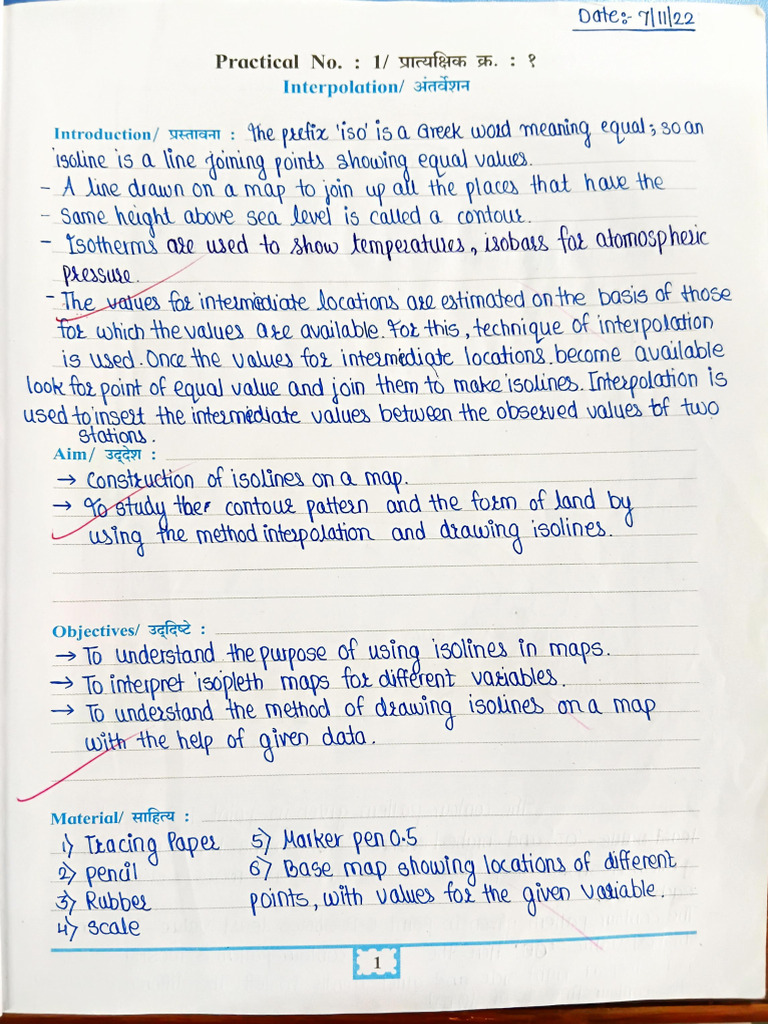 Date:- 7/11/22
Practical No. : 1/ प्रात्यक्षिक क्र. : १
Interpolation/ अंतर्वेशन
Introduction/ प्रस्तावना : The prefix 'iso' is a Greek word meaning equal; so an
isoline is a line joining points showing equal values.
- A line drawn on a map to join up all the places that have the
- Same height above sea level is called a contour.
- Isotherms are used to show temperatures, isobars for atomospheric
pressure.
- The values for intermediate locations are estimated on the basis of those
for which the values are available. For this, technique of interpolation
is used. Once the values for intermediate locations. become available
look for point of equal value and join them to make isolines. Interpolation is
used to insert the intermediate values between the observed values of two
stations.
Aim/ उद्देश :
→ Construction of isolines on a map.
→ To study the contour pattern and the form of land by
using the method interpolation and drawing isolines.
Objectives/ उद्दिष्टे :
→ To understand the purpose of using isolines in maps.
→ To interpret isopleth maps for different variables.
→ To understand the method of drawing isolines on a map
with the help of given data.
Material/ साहित्य :
1) Tracing Paper 5) Marker pen 0.5
2) pencil 6) Base map showing locations of different
3) Rubber points, with values for the given variable.
4) scale
1